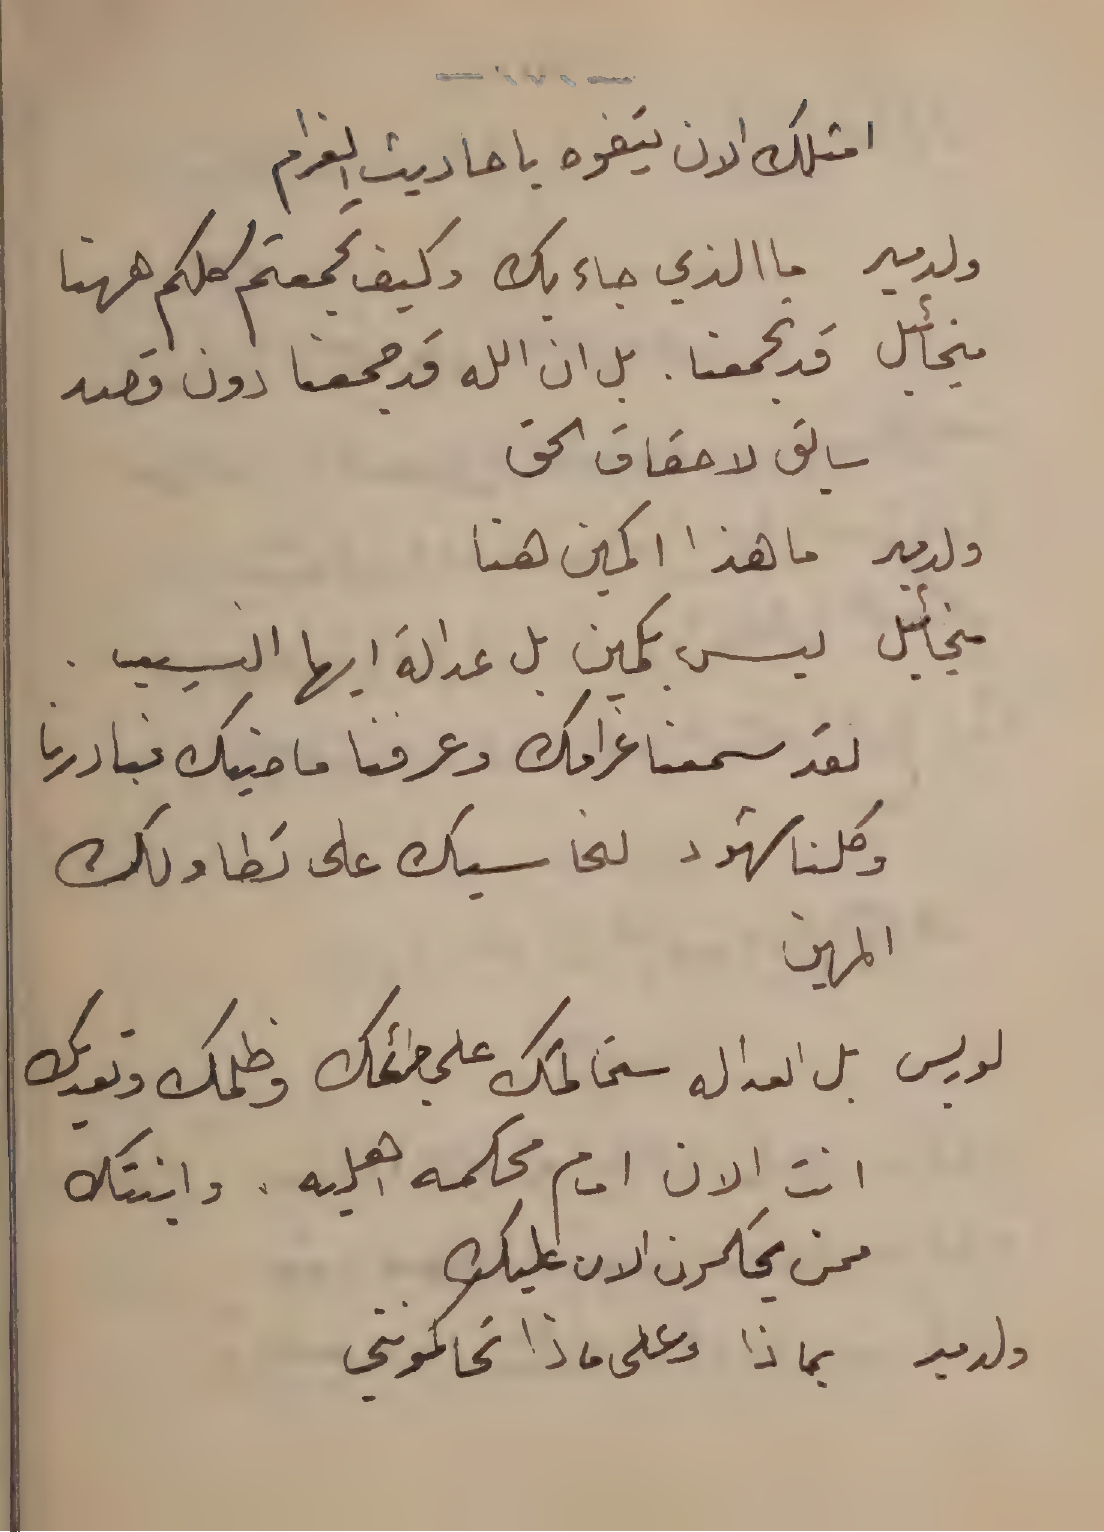 امثلك الان يتفوه باحاديث الغرام
ولدمير ما الذي جاء بك وكيف تجمعتم كلكم ههنا
ميخائيل قد تجمعنا. بل ان الله قد جمعنا دون قصد
سابق لاحقاق الحق
ولدمير ما هذا الكمين هنا
ميخائيل ليس بكمين بل عدالة ايها النسيب.
لقد سمعنا غرامك وعرفنا ماضيك فبادرنا
وكلنا شهود لنحاسبك على تطاولك
المهين
لويس بل العداله ستحاكمك على جرائمك وظلمك وتعديك
انت الان امام محكمه اهليه. وابنتك
ممن يحكمون الان عليك
ولدمير بماذا وعلى ماذا تحاكمونني